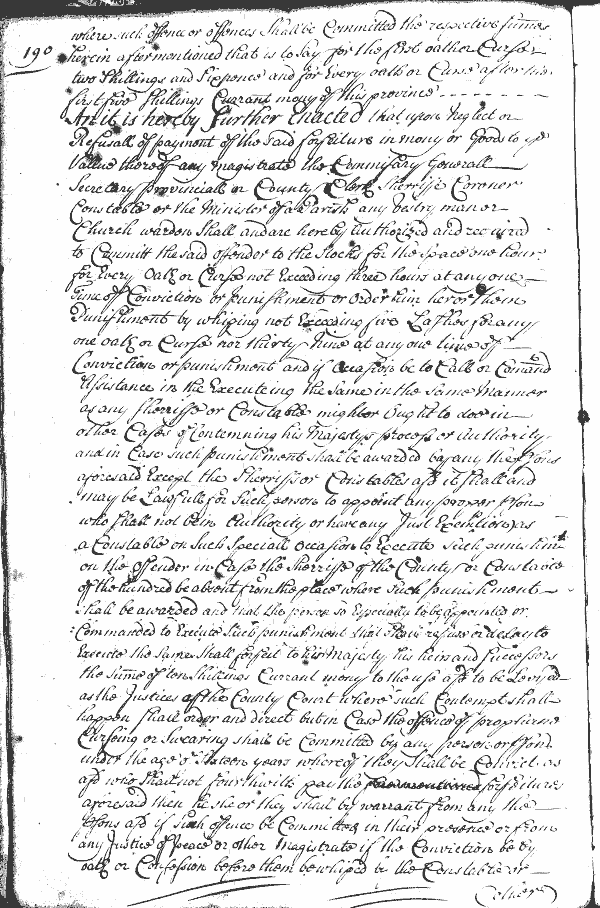 where such offence or offences Shall be Committed the respective summes
190
herein aftermentioned that is to say for the first oath or Curse
two Shillings and Sixpence and for Every oath or Curse after the
first five Shillings Currant mony of this province
And it is hereby further Enacted that upon Neglect or
Refusall of payment of the said forfeiture in mony or Goods to ye
Vallue thereof any magistrate the Commissary Generall
Secretary provinciall or County Clerk Sherriffe Coroner
Constable or the Minister of a Parish any Vestry man or
Church warden Shall and are hereby Authorized and required
to Committ the said offender to the Stocks for the space one hour
for Every Oath or Curse not Exceeding three hours at any one
Time off Conviction or punishment or Order him her or them
Punishment by whiping not Exceeding five Lashes for any
one oath or Curse nor thirty Nine at any one time of
Conviction or punishment and if Occasion be to Call or Comand
Assistance in the Executeing the Same in the Same Manner
as any Sherriffe or Constable might or Ought to doe in
other Cases of Contemning his Majestys process or Authority
and in Case Such punishment shall be awarded by any the psons
aforesaid Except the Sherriffs or Constables afsd it shall and
may be Lawfull for Such person to appoint any proper pson
who shall not be in Authority or have any Just Exemption as
a Constable on Such Speciall Occasion to Execute Such punishmt
on the offender in Case the Sherriffe of the County or Constable
of the hundred be absent from the place where Such punishment
Shall be awarded and that the person so Especially to be appointed or
Commanded to Execute Such punishment that Shall refuse or delay to
Execute the Same Shall forfeit to his Majesty his heirs and Successors
the Summe of ten Shillings Currant mony to the use afsd to be Levied
as the Justices of the County Court where such Contempt shall
happen shall order and direct but in Case the offence of prophane
Curseing or Swearing shall be Committed by any person or psons
under the age of Sixteen years whereof they Shall be Convict as
afsd who Shall not fourthwith pay the forfeiture
aforesaid then he she or they shall by warrant from any the
psons afsd if such offence be Committed in their presence or from
any Justice of peace or other Magistrate if the Conviction be by
oath or Confession before them be whiped by the Constable or
other